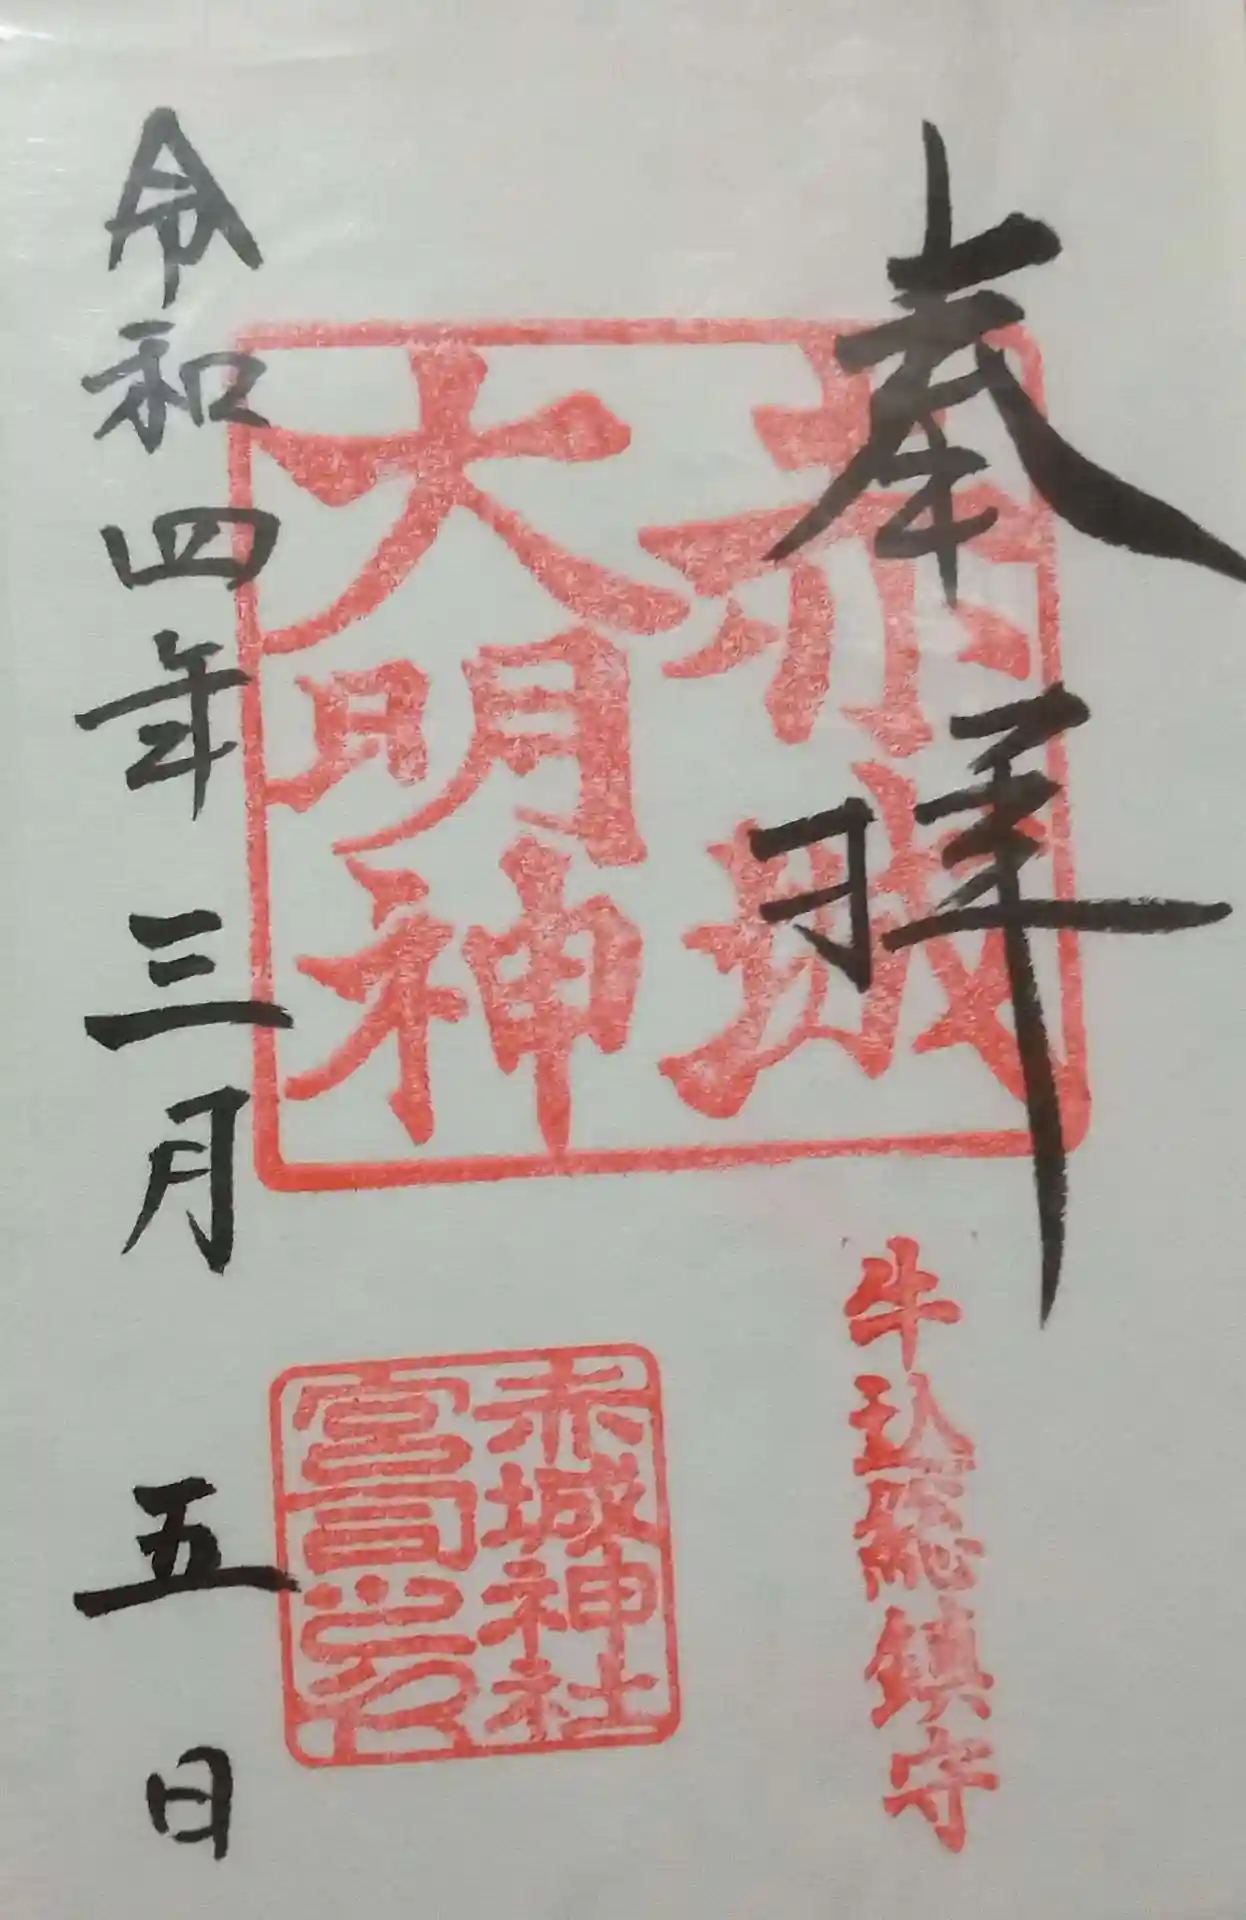 奉拝
赤城
大明神
牛込総鎮守
赤城神社
宮司之印
令和四年三月五日